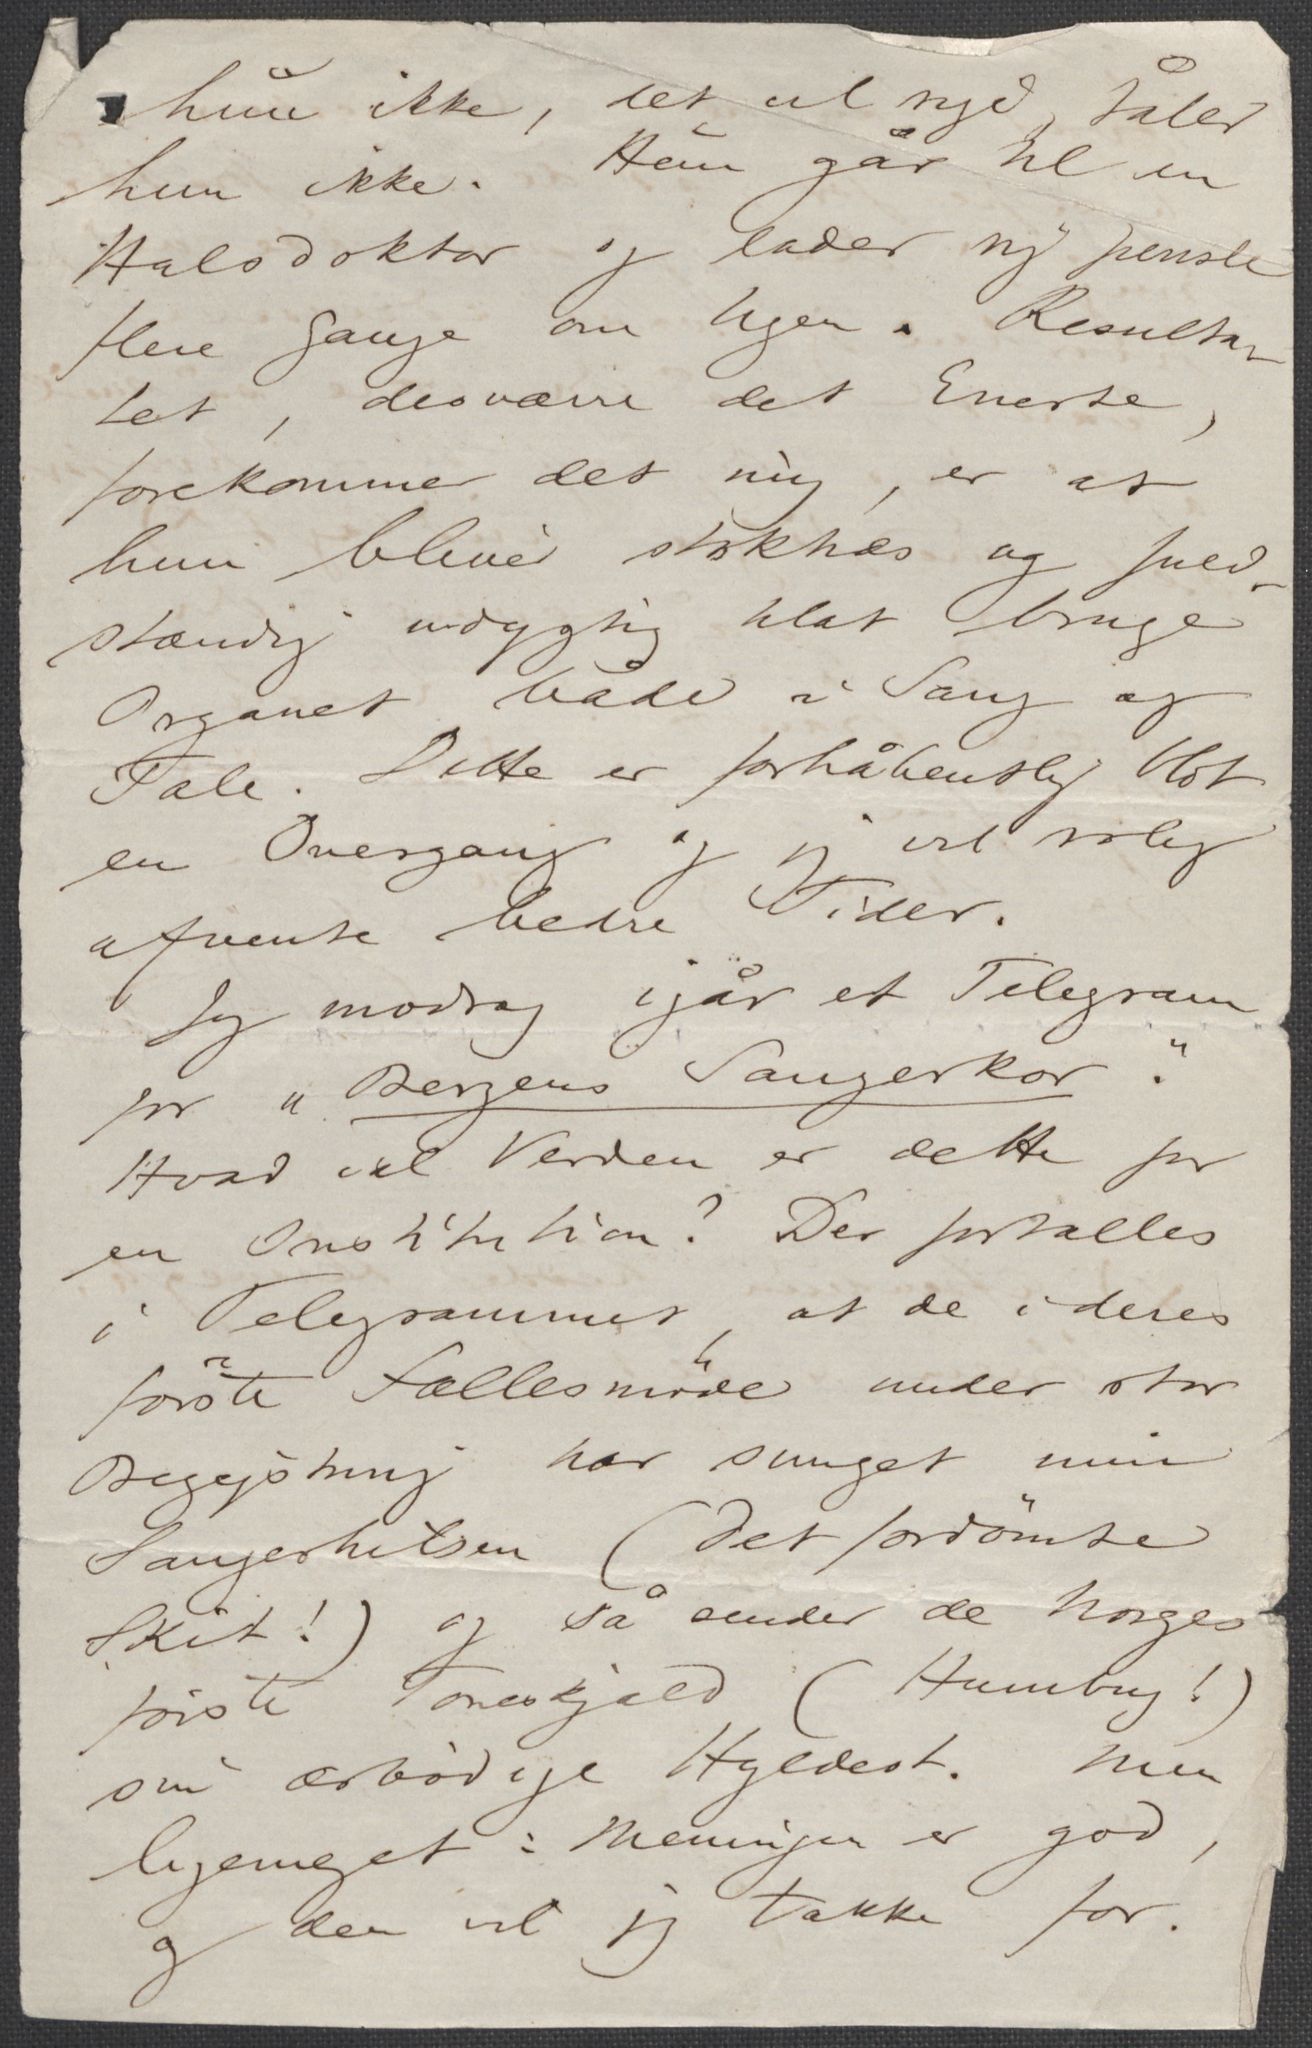 hun ikke, det vil sige, tåler
hun ikke. Hun går til en
Halsdoktor og lader sig pensle
flere Gange om Ugen. Resulta-
tet, desværre det Eneste,
forekommer det mig, er at
hun bliver stokhæs og fuld-
stændig udygtig til at bruge
Organet både i Sang og
Tale. Dette er forhåbentlig blot
en Overgang og jeg vil rolig
afvente bedre Tider.
Jeg modtog igår et Telegram
fra "Bergens Sangerkor".
Hvad i al Verden er dette for
en Institution? Der fortælles
i Telegrammet, at de i deres
første Fællesmöde under stor
Begejstring har sunget min
Sangerhilsen (det fordömte
Skit!) og så sender de Norges
første Toneskjald (Humbug!)
sin ærbødige Hyldest. Men
ligemeget: Meningen er god,
og den vil jeg takke for.